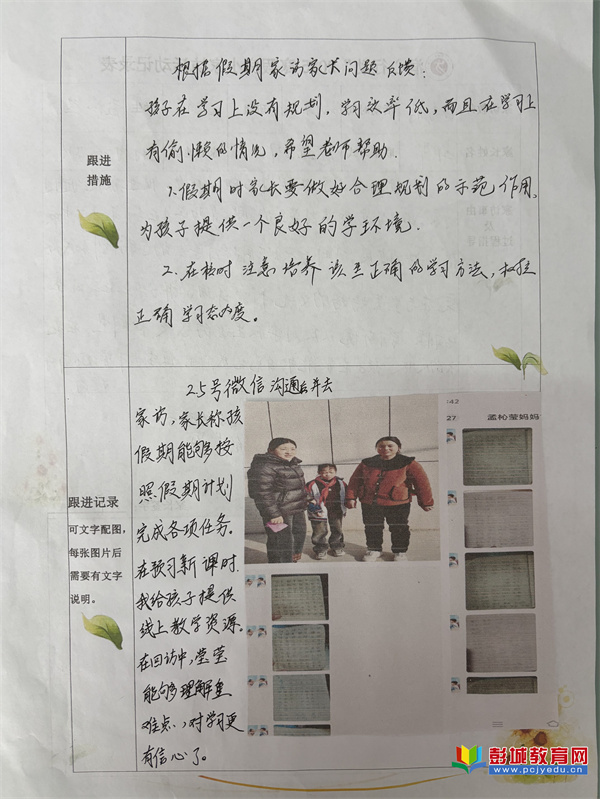 根据假期家访家长问题反馈：
孩子在学习上没有规划，学习效率低，而且在学习上
有偷懒的情况，希望老师帮助.
跟进
措施
1.假期时家长要做好合理规划的示范作用，
为孩子提供一个良好的学环境.
2.在校时注意培养该生正确的学习方法，树立
正确学习态度。
25号微信沟通后并去
家访，家长称孩
假期能够按
照假期计划
完成各项任务.
在预习新课时.
我给孩子提供
线上教学资源.
在回访中，莹莹
能够理解重
难点，对学习更
有信心了。
跟进记录
可文字配图，
每张图片后
需要有文字
说明。
:42
27
孟杺莹妈妈
彭城教育网
www.pcjyedu.cn